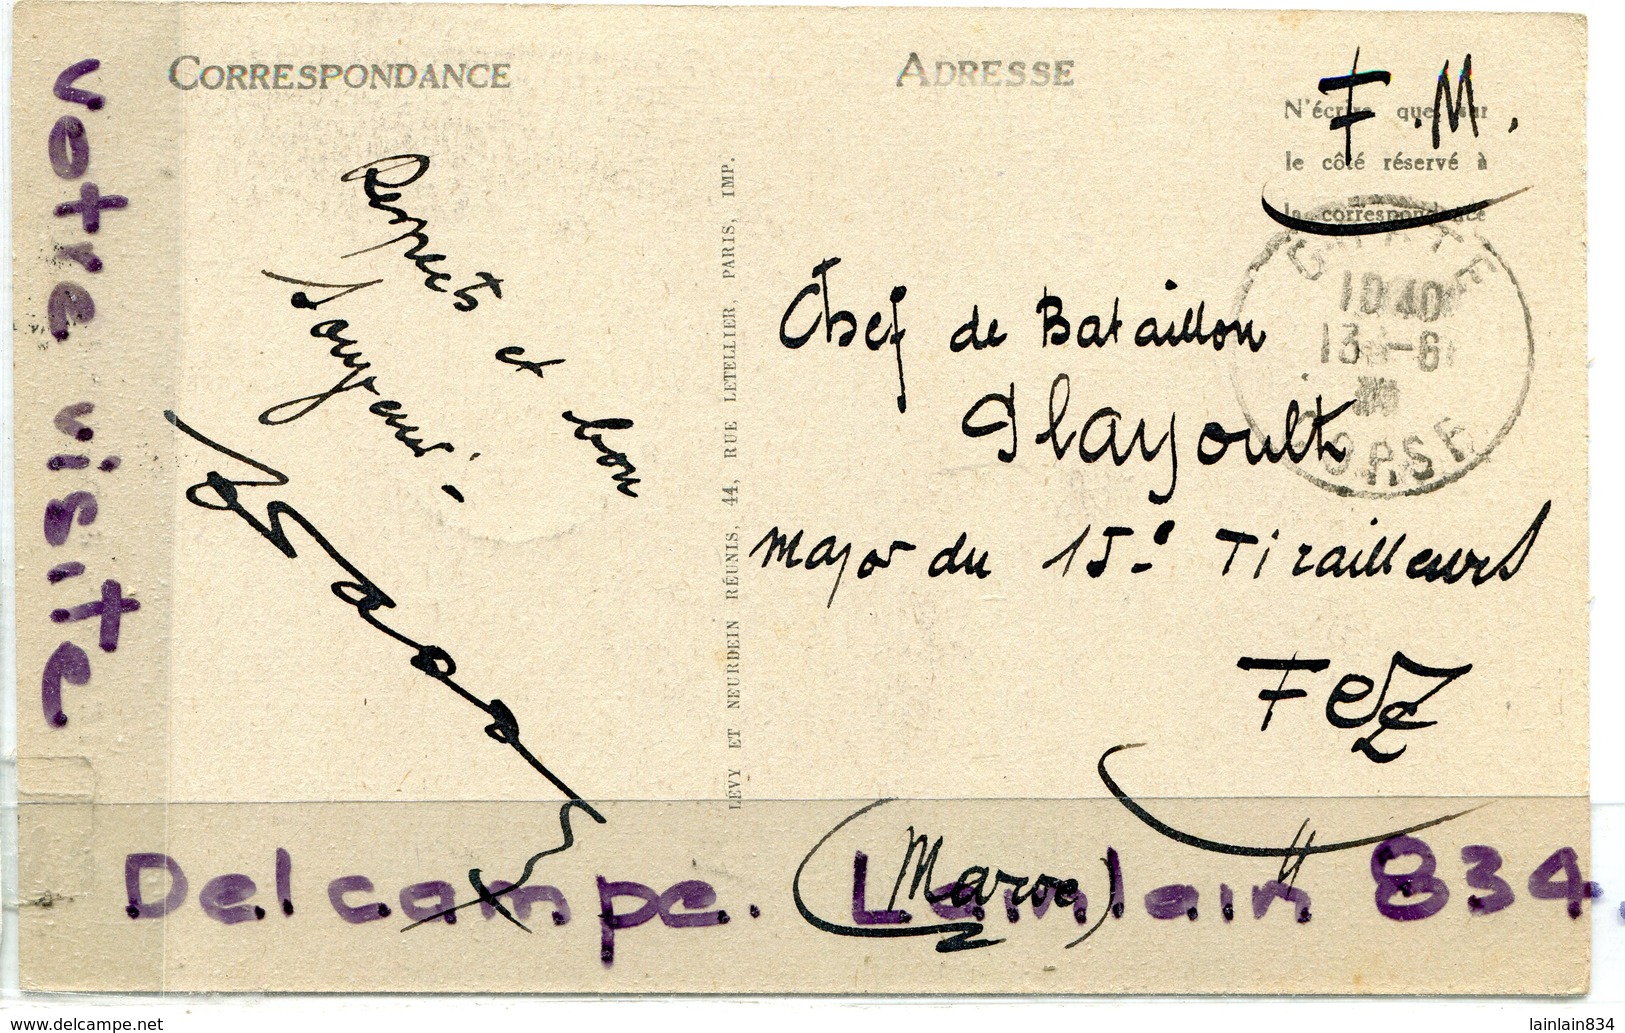 CORRESPONDANCE
ADRESSE
F.M.
N'écrire que sur
le côté réservé à
la correspondance
Respects et bon
1040
13 -6
CORSE
Chef de Bataillon
Glayoult
Major du 15e Tirailleurs
Fez
(Maroc)
LÉVY ET NEURDEIN RÉUNIS, 44, RUE LETELLIER, PARIS, IMP.
votre visite
Delcampe. Lainlain 834.
www.delcampe.net
lainlain834